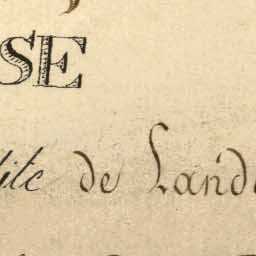 SE
lite de Land